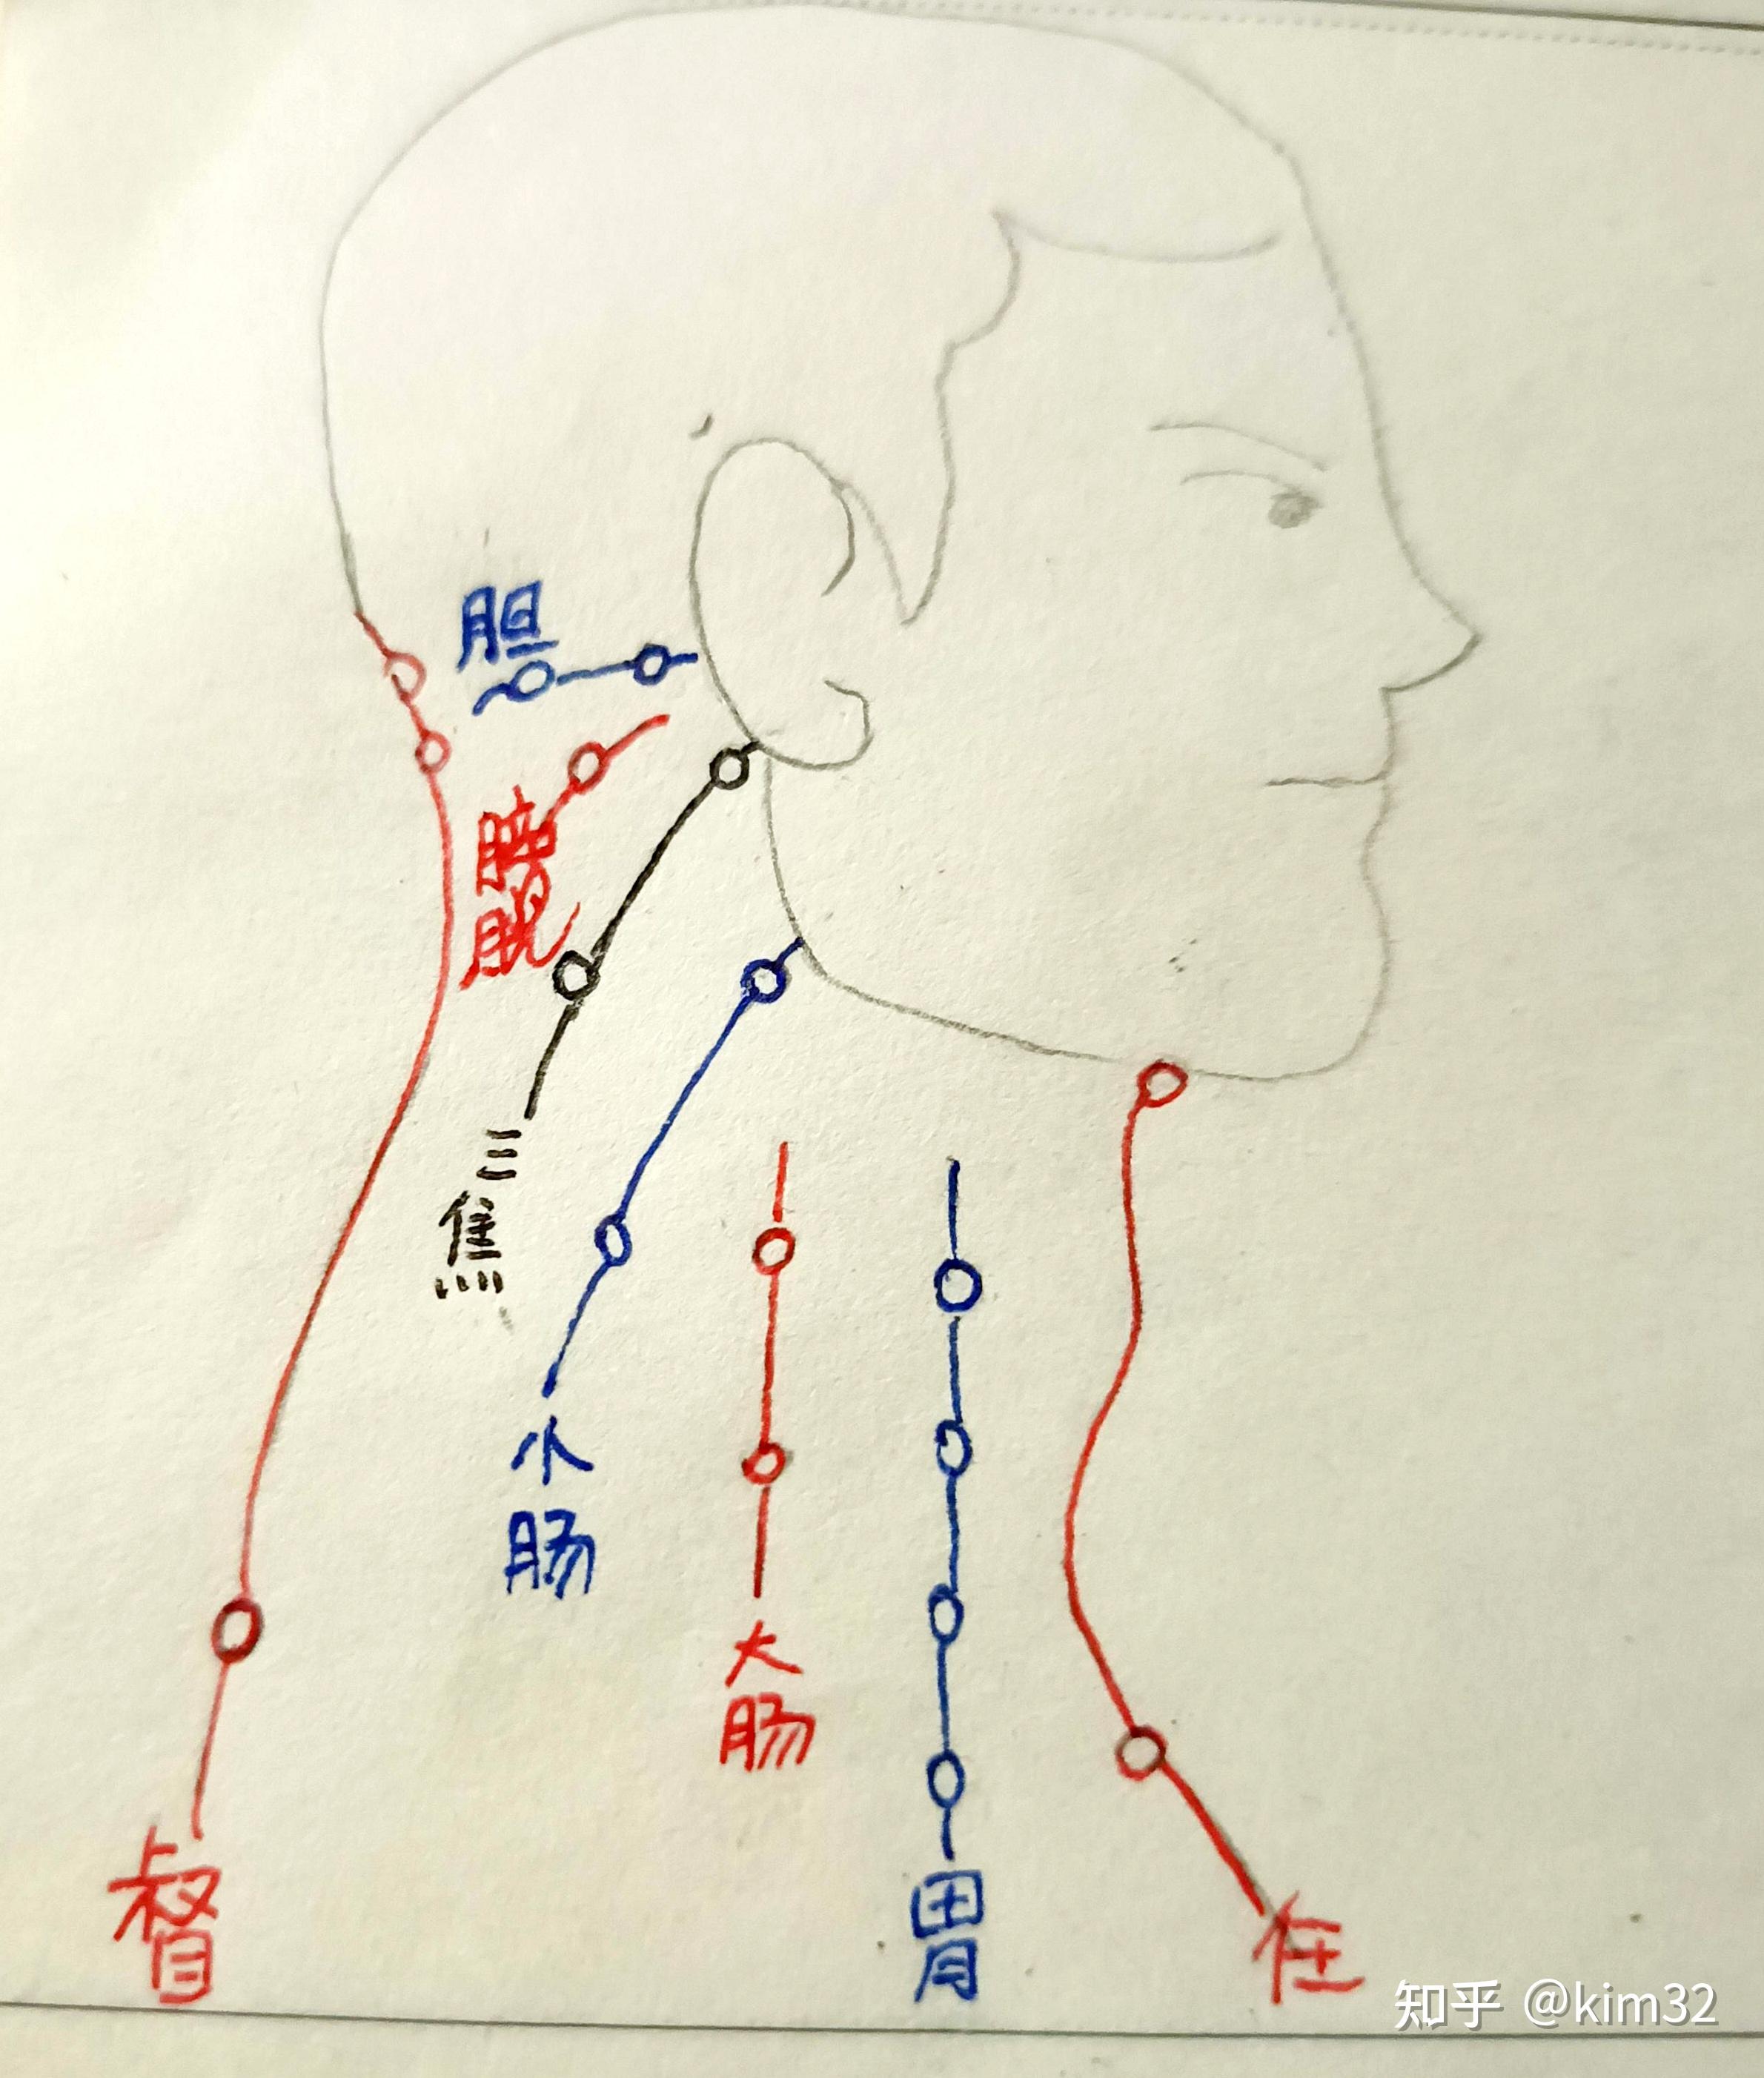 胆
膀胱
三焦
小肠
大肠
胃
督
任
知乎 @kim32